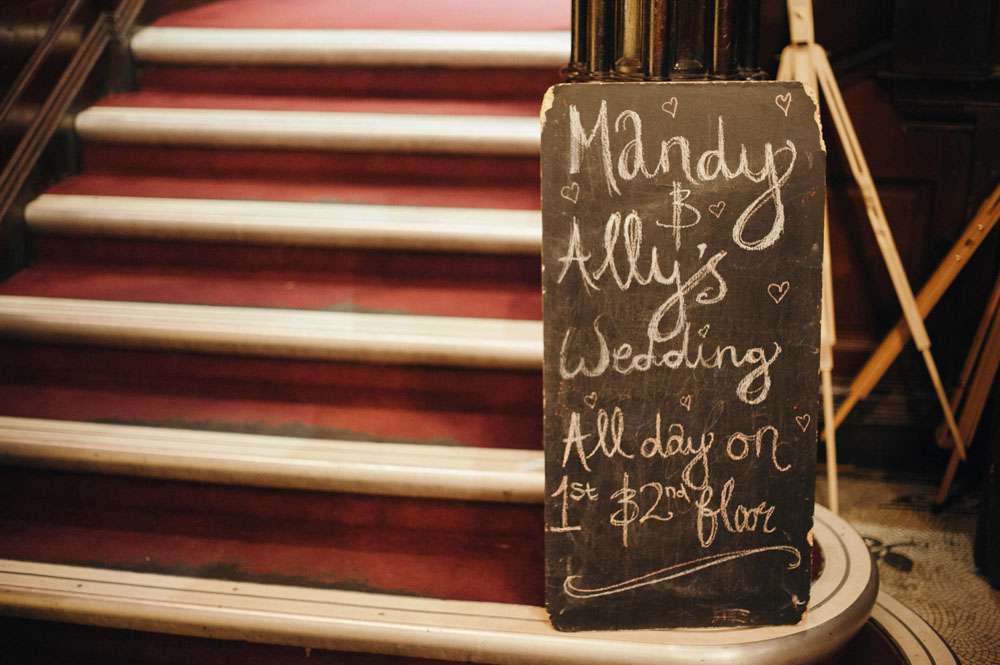 Mandy
&
Ally's
Wedding
All day on
1st & 2nd floor